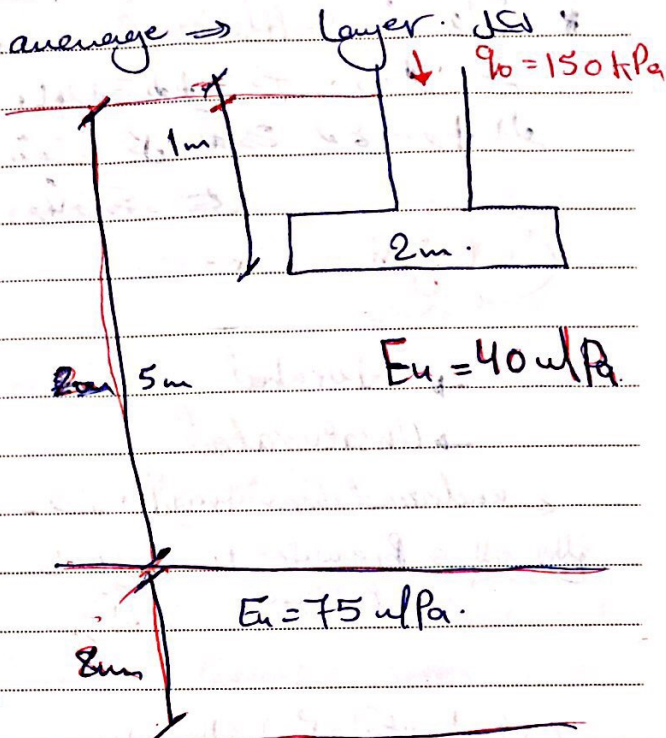 average ⇒ Layer. لكل :
q₀ = 150 kPa
1m
2m.
5m
Eu = 40 MPa.
Eu = 75 MPa.
8m